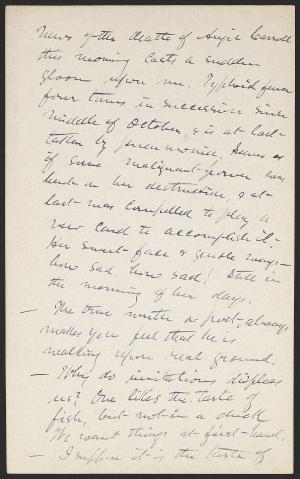 News of the death of Angie Carroll
this morning casts a sudden
gloom upon me. Typhoid fever
four times in succession since
middle of October, & is at last
taken by pneumonia, seems as
if some malignant power was
bent on her destruction, & at
last was compelled to play a
new card to accomplish it.
Her sweet face & gentle ways—
how sad, how sad! Still in
the morning of her days.
— The true writer or poet always
makes you feel that he is
walking upon real ground.
— Why do imitations displeas
us? One likes the taste of
fish, but not in a duck.
We want things at first-hand.
— I suppose it is the taste of